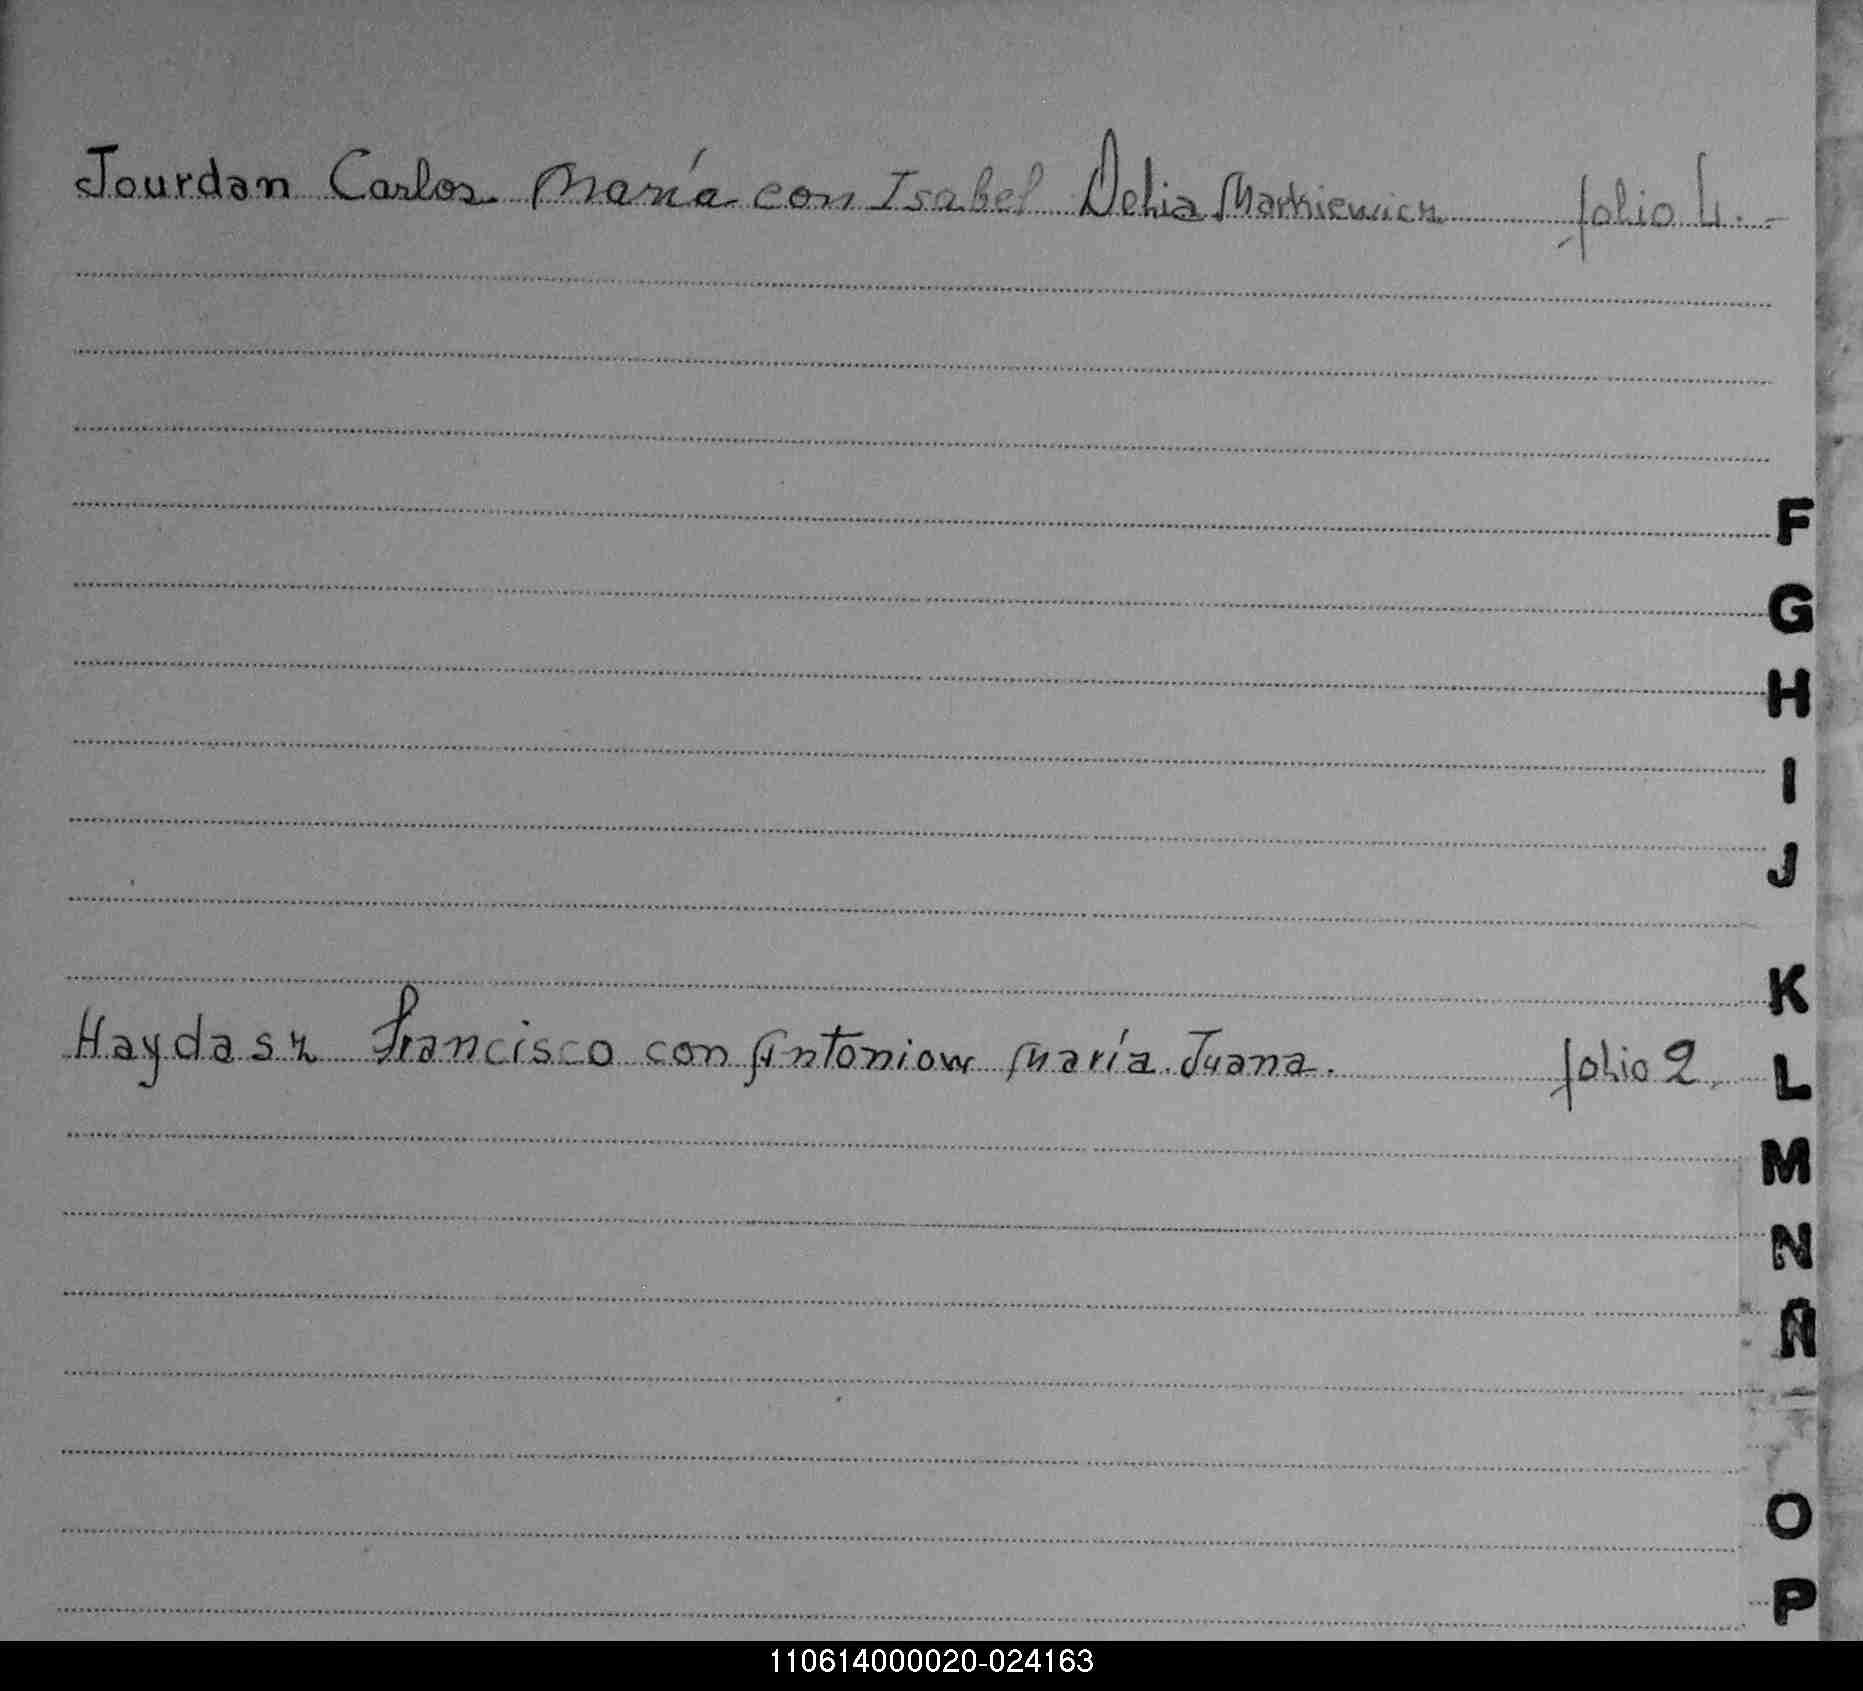 Jourdan Carlos María con Isabel Delia Markiewicz folio 4.-
F
G
H
I
J
K
Haydasz Francisco con Antoniow María Juana. folio 2.
L
M
N
Ñ
O
P
110614000020-024163